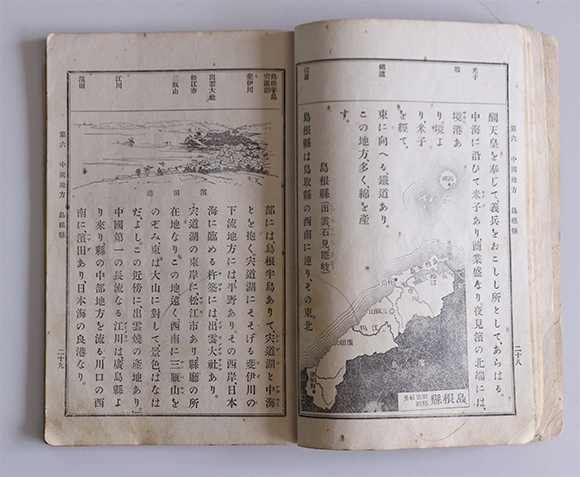 米子
境
第六 中國地方 島根縣
二十八
醐天皇を奉じて義兵をおこしし所として、あらはる。
中海に沿ひて米子あり、商業盛なり。夜見濱の北端には、
境港あ
り。境よ
り、米子
を經て、
東に向へる鐵道あり。
この地方、多く、綿を産
す。
島根縣(出雲石見隱岐)
島根縣は鳥取縣の西南に連り、その東北
三瓶山
江川
濱田
島根縣
島根半島
宍道湖
斐伊川
出雲大社
松江市
三瓶山
江川
濱田
濱田港
部には島根半島ありて、宍道湖と中海
とを抱く。宍道湖にそそげる斐伊川の
下流地方には平野あり。その西岸日本
海に臨める杵築には出雲大社あり。
宍道湖の東岸に松江市あり、縣廳の所
在地なり。この地遠く西南に三瓶山を
のぞみ、東は大山に對して、景色はなは
だよし。この近傍に出雲燒の産地あり。
中國第一の長流なる江川は廣島縣よ
り來り、縣の中部地方を流る。川口の西
南に濱田あり、日本海の良港なり。
第六 中國地方 島根縣
二十九